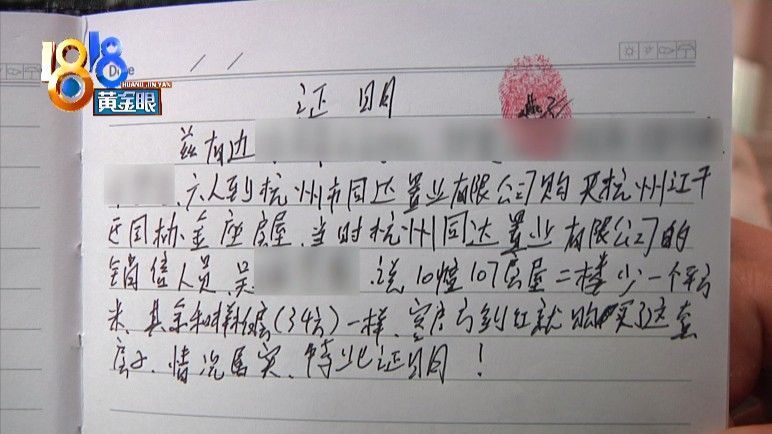 1818
HUANG JIN YAN
黄金眼
Date / /
证明
兹有边
六人到杭州市同达置业有限公司购买杭州江干
区同协金座房屋、当时杭州同达置业有限公司的
销售人员吴 说10幢107房屋二楼少一个平方
米、其余和 (34方)一样、 就购买了这套
房子、情况属实、特此证明！